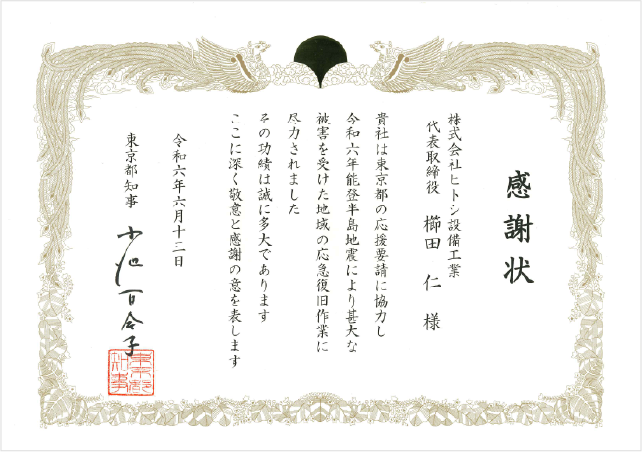 感謝状
株式会社ヒトシ設備工業
代表取締役 櫛田 仁 様
貴社は東京都の応援要請に協力し
令和六年能登半島地震により甚大な
被害を受けた地域の応急復旧作業に
尽力されました
その功績は誠に多大であります
ここに深く敬意と感謝の意を表します
令和六年六月十三日
東京都知事 小池百合子
東京都
知事